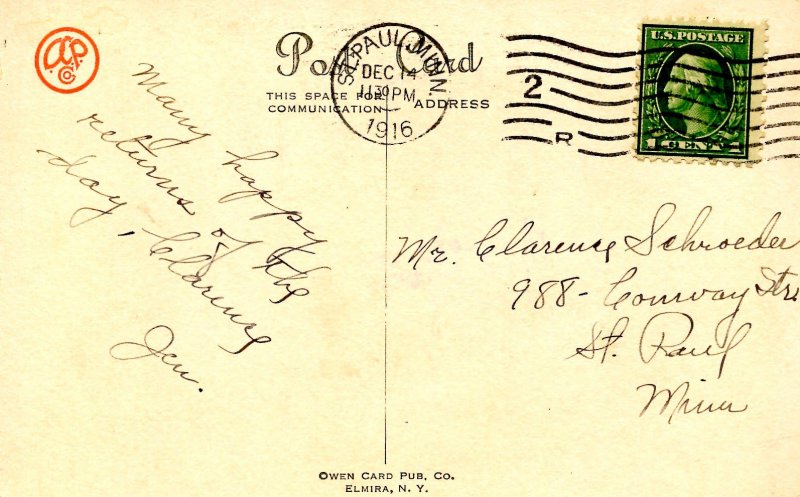 OCP
Co.
Post Card
THIS SPACE FOR
COMMUNICATION
ADDRESS
ST. PAUL, MINN.
DEC 14
11 30 PM
1916
2
R
U.S. POSTAGE
1 CENT
Many happy
returns of the
day, Clarence
Jen.
Mr. Clarence Schroeder
988 - Conway Str.
St. Paul
Minn
OWEN CARD PUB. CO.
ELMIRA, N. Y.